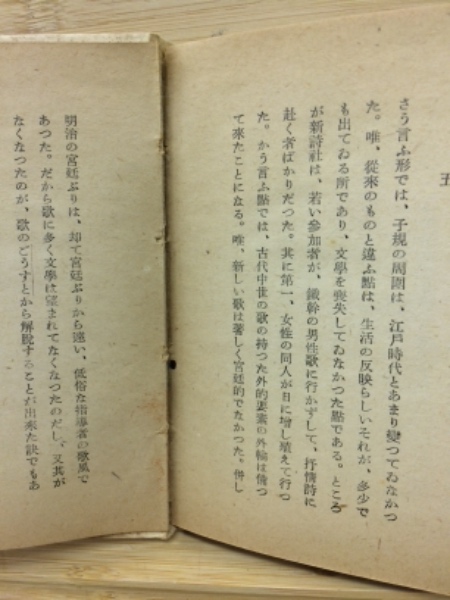 五
さう言ふ形では、子規の周圍は、江戸時代とあまり變つてゐなかつ
た。唯、從來のものと違ふ點は、生活の反映らしいそれが、多少で
も出てゐる所であり、文學を喪失してゐなかつた點である。ところ
が新詩社は、若い參加者が、鐵幹の男性歌に行かずして、抒情詩に
赴く者ばかりだつた。其に第一、女性の同人が日に增し殖えて行つ
た。かう言ふ點では、古代中世の歌の持つた外的要素の外輪は備つ
て來たことになる。唯、新しい歌は著しく宮廷的でなかつた。併し
明治の宮廷ぶりは、却て宮廷ぶりから遠い、低俗な指導者の歌風で
あつた。だから歌に多く文學は望まれてなくなつたのだし、又其が
なくなつたのが、歌のごうすとから解脫することが出來た訣でもあ